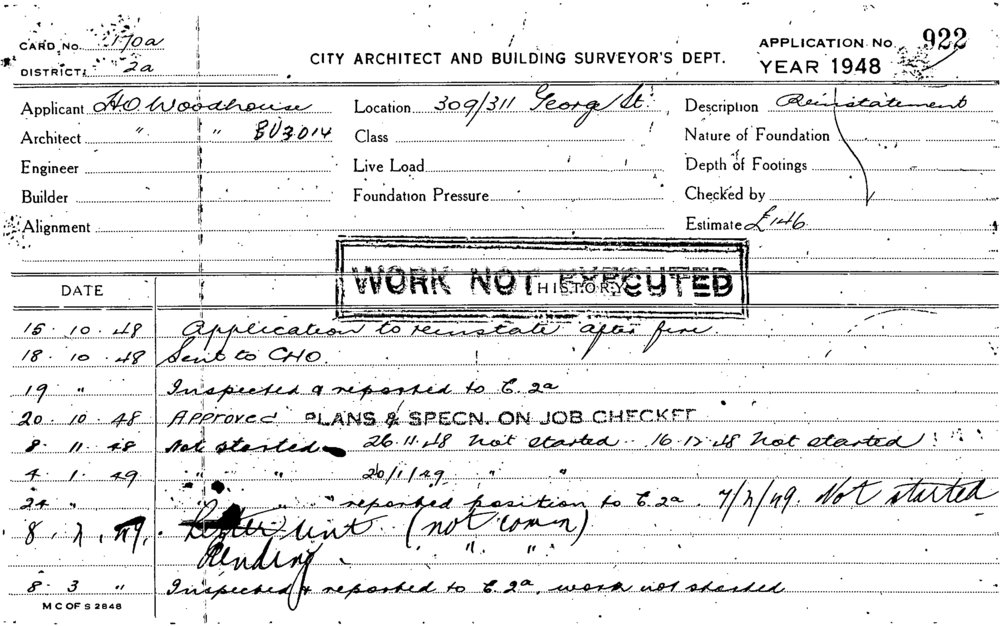 CARD NO. 170a
DISTRICT 2a
CITY ARCHITECT AND BUILDING SURVEYOR'S DEPT.
APPLICATION NO. 922
YEAR 1948
Applicant H O Woodhouse
Location 309/311 George St.
Description Reinstatement
Architect " " BU3014
Class
Nature of Foundation
Engineer
Live Load
Depth of Footings
Builder
Foundation Pressure
Checked by
Alignment
Estimate £146
WORK NOT EXECUTED
DATE HISTORY
15. 10. 48 Application to reinstate after fire.
18. 10. 48 Sent to CHO.
19 " Inspected & reported to C. 2a
20. 10. 48 Approved PLANS & SPECN. ON JOB CHECKET
8. 11. 48 Not started 26.11.48 Not started 16.12.48 Not started
4. 1. 49 " " 20/1/49 " "
24 " " reported position to C.2a 7/2/49. Not started
8. 2. 49. Letter sent (not
Pending " "
8. 3 " Inspected & reported to C. 2a. work not started
M C OF S 2848